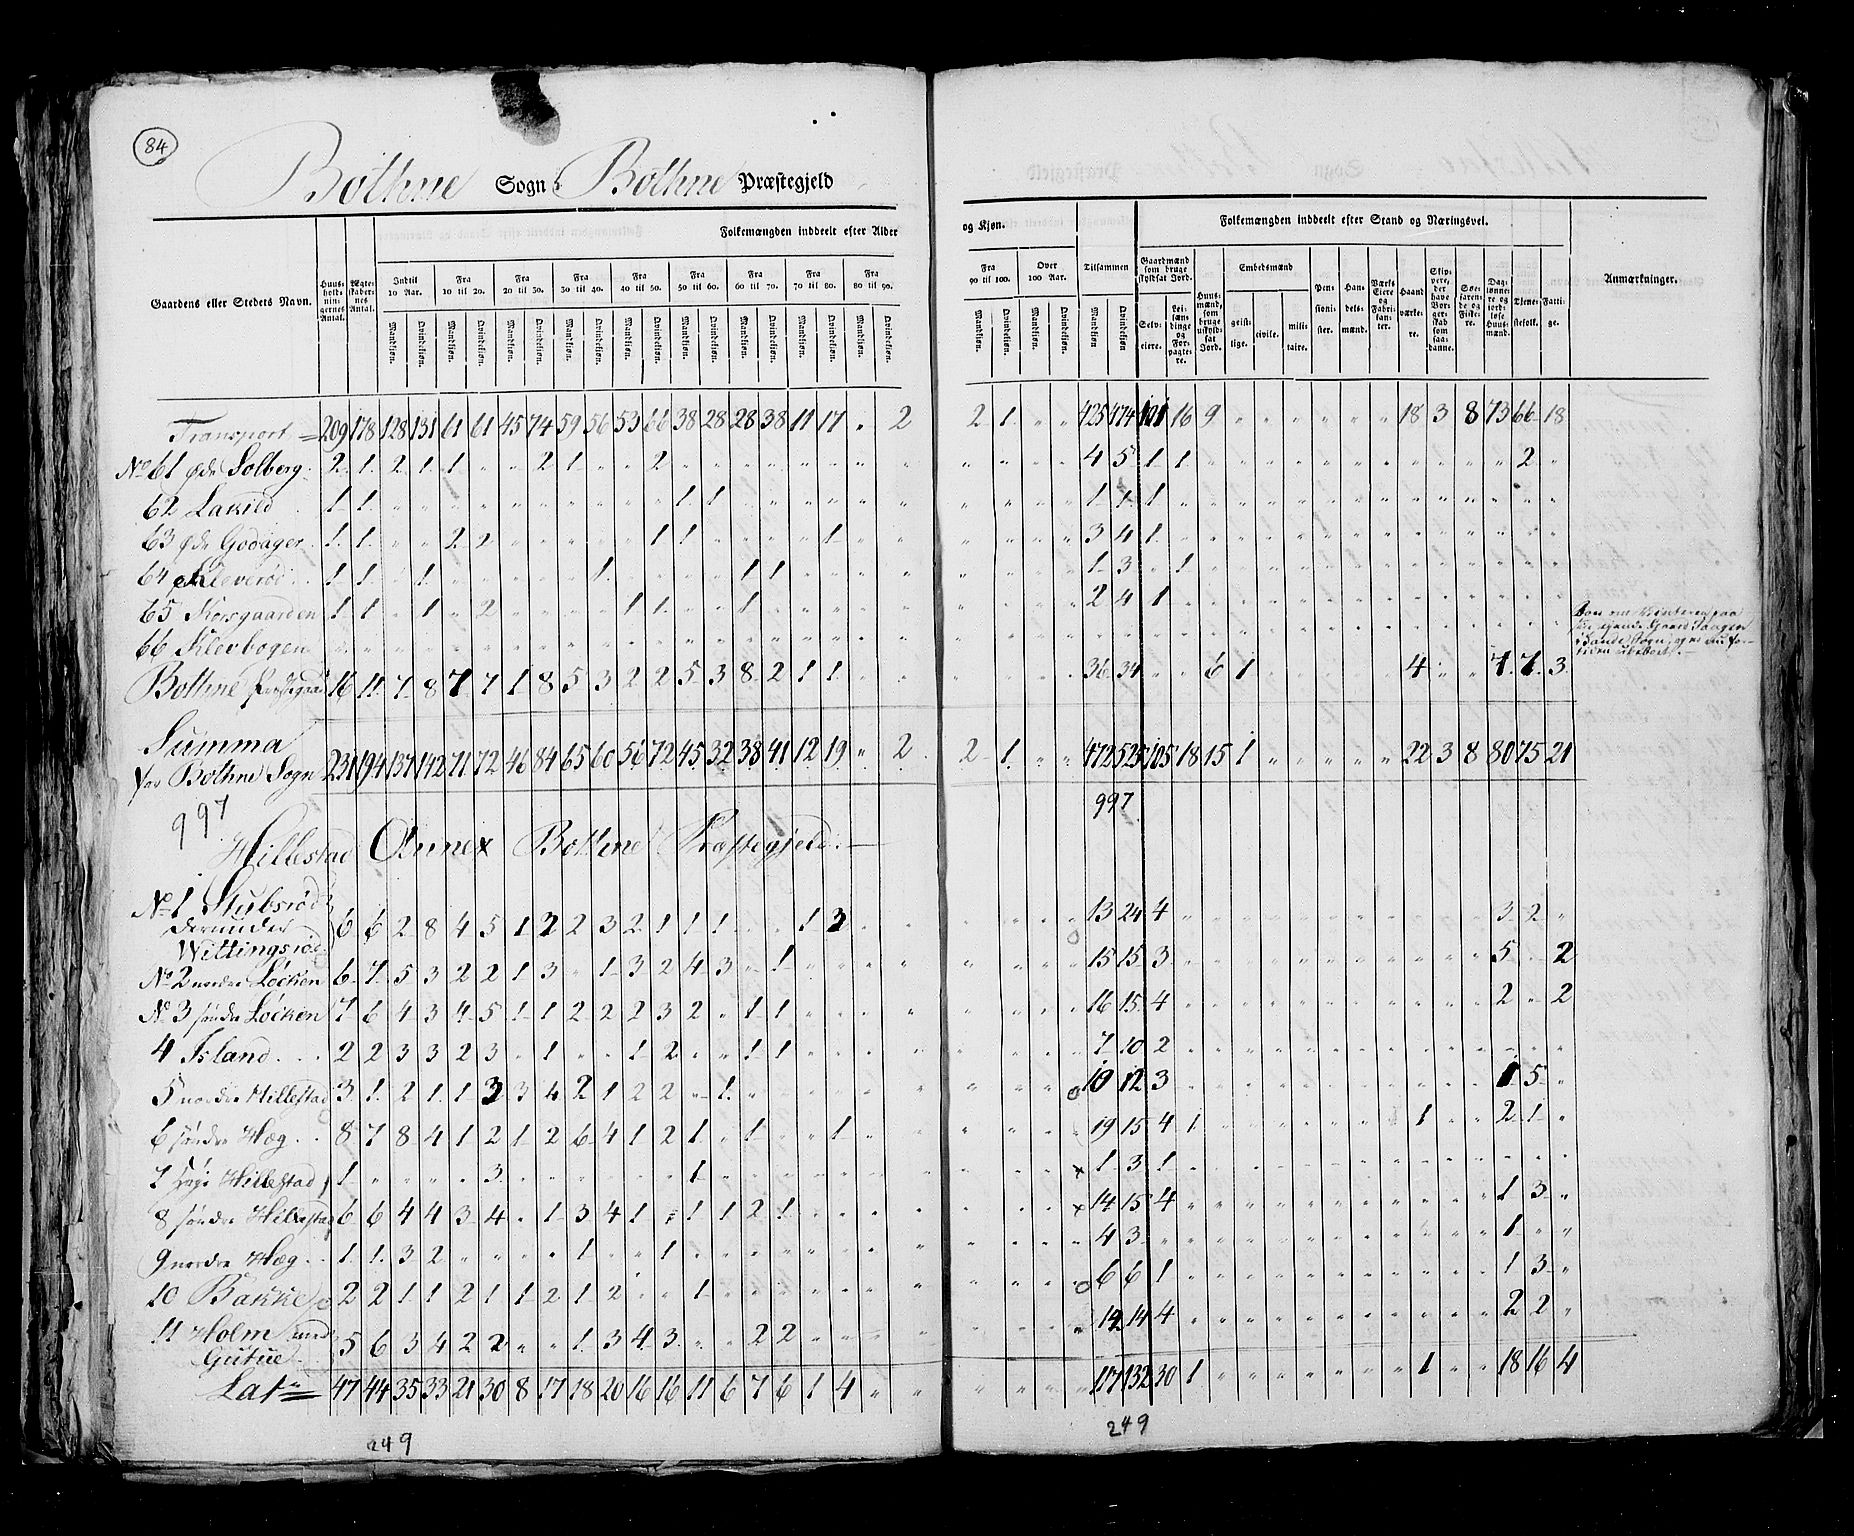 84
Bothne Sogn i Bothne Præstegjeld
Folkemængden inddeelt efter Alder og Kjøn.
Folkemængden inddeelt efter Stand og Næringsvei.
Gaardens eller Stedets Navn.
Huusholdningernes Antal.
Ægteskabernes Antal.
Indtil 10 Aar.
Fra 10 til 20.
Fra 20 til 30.
Fra 30 til 40.
Fra 40 til 50.
Fra 50 til 60.
Fra 60 til 70.
Fra 70 til 80.
Fra 80 til 90.
Fra 90 til 100.
Over 100 Aar.
Tilsammen
Mandkiøn. Qvindekiøn.
Gaardmænd som bruge skyldsat Jord.
Selveiere.
Leilændinge og Forpagtere.
Huusmænd, som bruge uskyldsat Jord.
Embedsmænd
geistlige. civile. militaire.
Pensionister.
Handelsmænd.
Værks Eiere og Fabrikanter.
Haandværkere.
Skippere, der have Borgerskab som saadanne.
Søefarende og Fiskere.
Daglønnere og jordløse Huusmænd.
Tjenestefolk.
Fattige.
Anmærkninger.
Transport = 209 178 128 131 61 61 45 74 59 56 53 66 38 28 28 38 11 17 " 2 2 1 " " 425 474 101 16 9 " " " " " " 18 3 8 73 66 18
No 61 øde Solberg 2 1 2 1 1 " " 2 1 " " 2 4 5 1 1 2
62 Laskild 1 1 1 1 1 1 1
63 øde Godager 1 1 " " 2 2 1 1 1 3 4 1
64 Kleverød 1 1 " 1 1 1 1 1 3 " 1
65 Korsgaarden 1 1 " 1 " 2 1 1 1 2 4 1
66 Klevbogen
Bothne Præstegaard 16 11 7 8 7 7 1 8 5 3 2 2 5 3 8 2 1 1 36 34 " " 6 1 4 7 7 3
Summa
for Bothne Sogn 231 194 137 142 71 72 46 84 65 60 56 72 45 32 38 41 12 19 " 2 2 1 " " 472 525 105 18 15 1 " " " " " 22 3 8 80 75 21
997
997
Hillestad Annex Bothne Præstegjeld
No 1 Stubsrød
derunder
Wittingsrød 6 6 2 8 4 5 1 2 2 3 2 1 1 1 " " 1 3 13 24 4 3 2 "
No 2 nordre Løcken 6 7 5 3 2 2 1 3 " 1 3 2 4 3 " 1 15 15 3 5 " 2
No 3 søndre Løcken 7 6 4 3 4 5 1 1 2 2 2 3 2 " 1 1 16 15 4 2 " 2
4 Island 2 2 3 3 2 3 " 1 " " 1 2 " " 1 1 7 10 2
5 nordre Hillestad 3 1 2 1 1 3 3 4 2 1 2 2 " 1 10 12 3 1 5 "
6 søndre Hæg 8 7 8 4 1 2 1 2 6 4 1 2 1 " 1 " " 1 19 15 4 1 1 " " 2 1 "
7 Hillestad 1 " " " " 3 1 1 3 1
8 søndre Hillestad 6 6 4 4 3 4 " 1 3 4 1 " 1 1 2 1 14 15 4 1 3 "
9 nordre Hæg 1 1 3 2 " " " " 1 " " 1 4 3 " 1 " "
10 Bakke 2 2 1 1 2 1 1 2 1 2 " " 1 6 6 1 1 3 "
11 Holm med
Gutue 5 6 3 4 2 2 " " 1 3 4 3 " " 2 2 12 14 4 2 2 "
Lat = 47 44 35 33 21 30 8 17 18 20 16 16 11 6 7 6 1 4 " " 117 132 30 1 1 " " 18 16 4
249
249